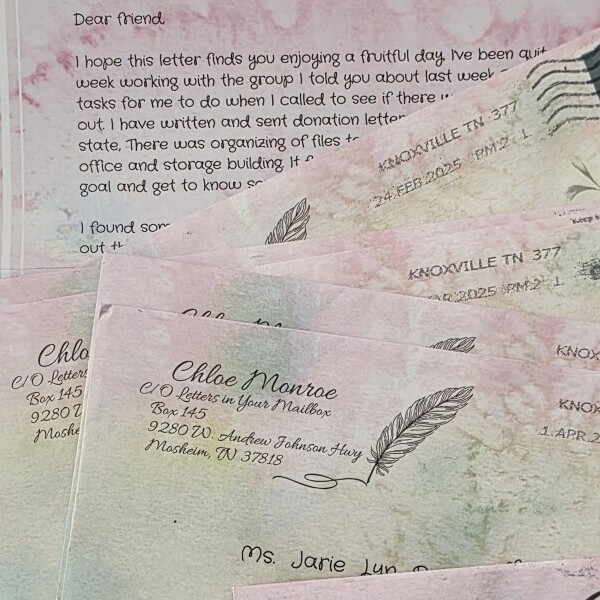 Dear friend
I hope this letter finds you enjoying a fruitful day. I've been
week working with the group I told you about last week
tasks for me to do when I called to see if there
out. I have written and sent donation
state. There was organizing of files
office and storage building. It
goal and get to know
I found
out
KNOXVILLE TN 377
24 FEB 2025 PM 2 L
KNOXVILLE TN 377
2025 PM 2 L
Box 145
Chloe Monroe
C/O Letters in Your Mailbox
Box 145
9280 W. Andrew Johnson Hwy
Mosheim, TN 37818
C/O Letters
Box 145
9280
1 APR
Ms. Jarie Lyn